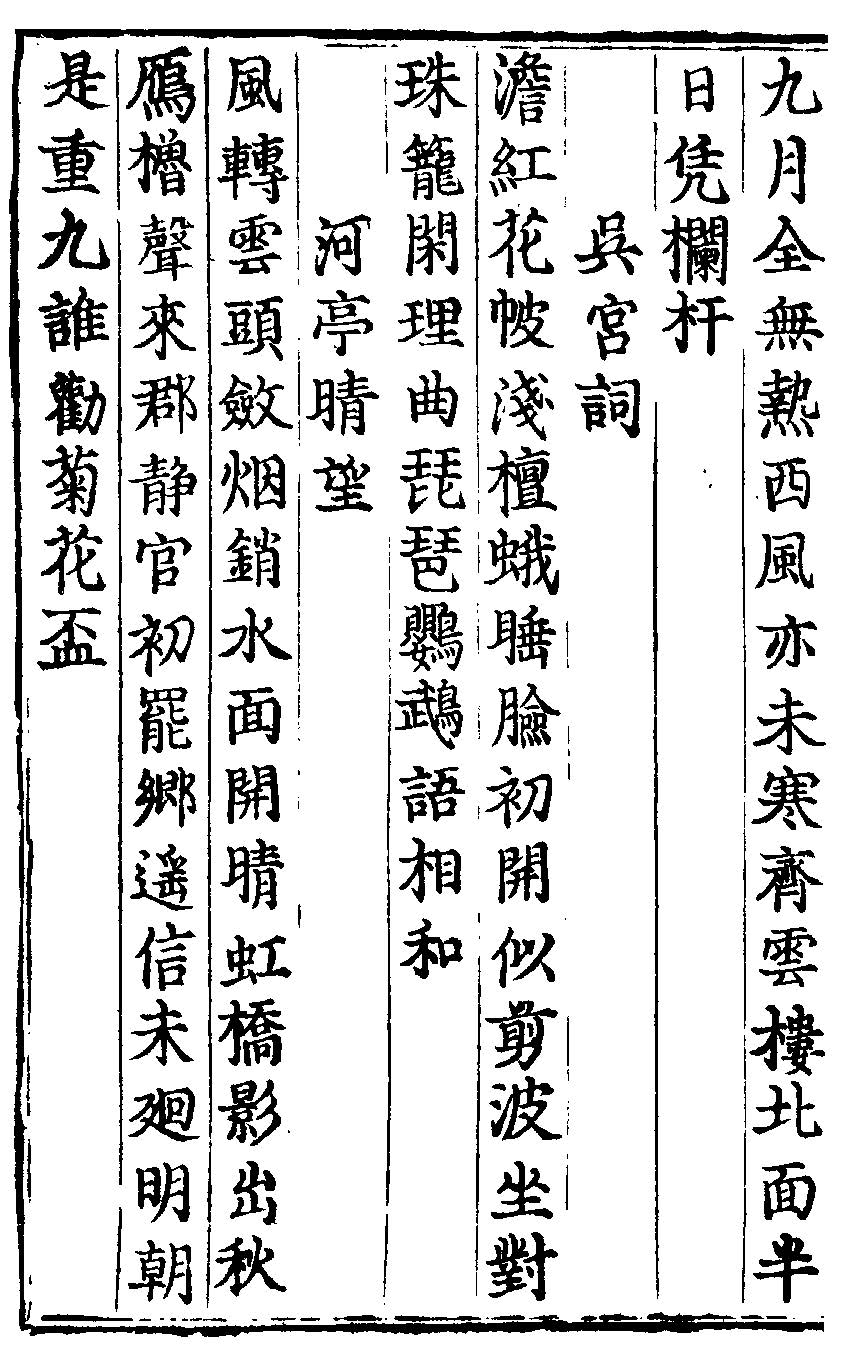 九月全無熱西風亦未寒齊雲樓北面半
日凭欄杆
吳宮詞
澹紅花帔淺檀蛾睡臉初開似剪波坐對
珠籠閑理曲琵琶鸚鵡語相和
河亭晴望
風轉雲頭斂烟銷水面開晴虹橋影出秋
鴈櫓聲來郡静官初罷鄉遥信未廻明朝
是重九誰勸菊花盃